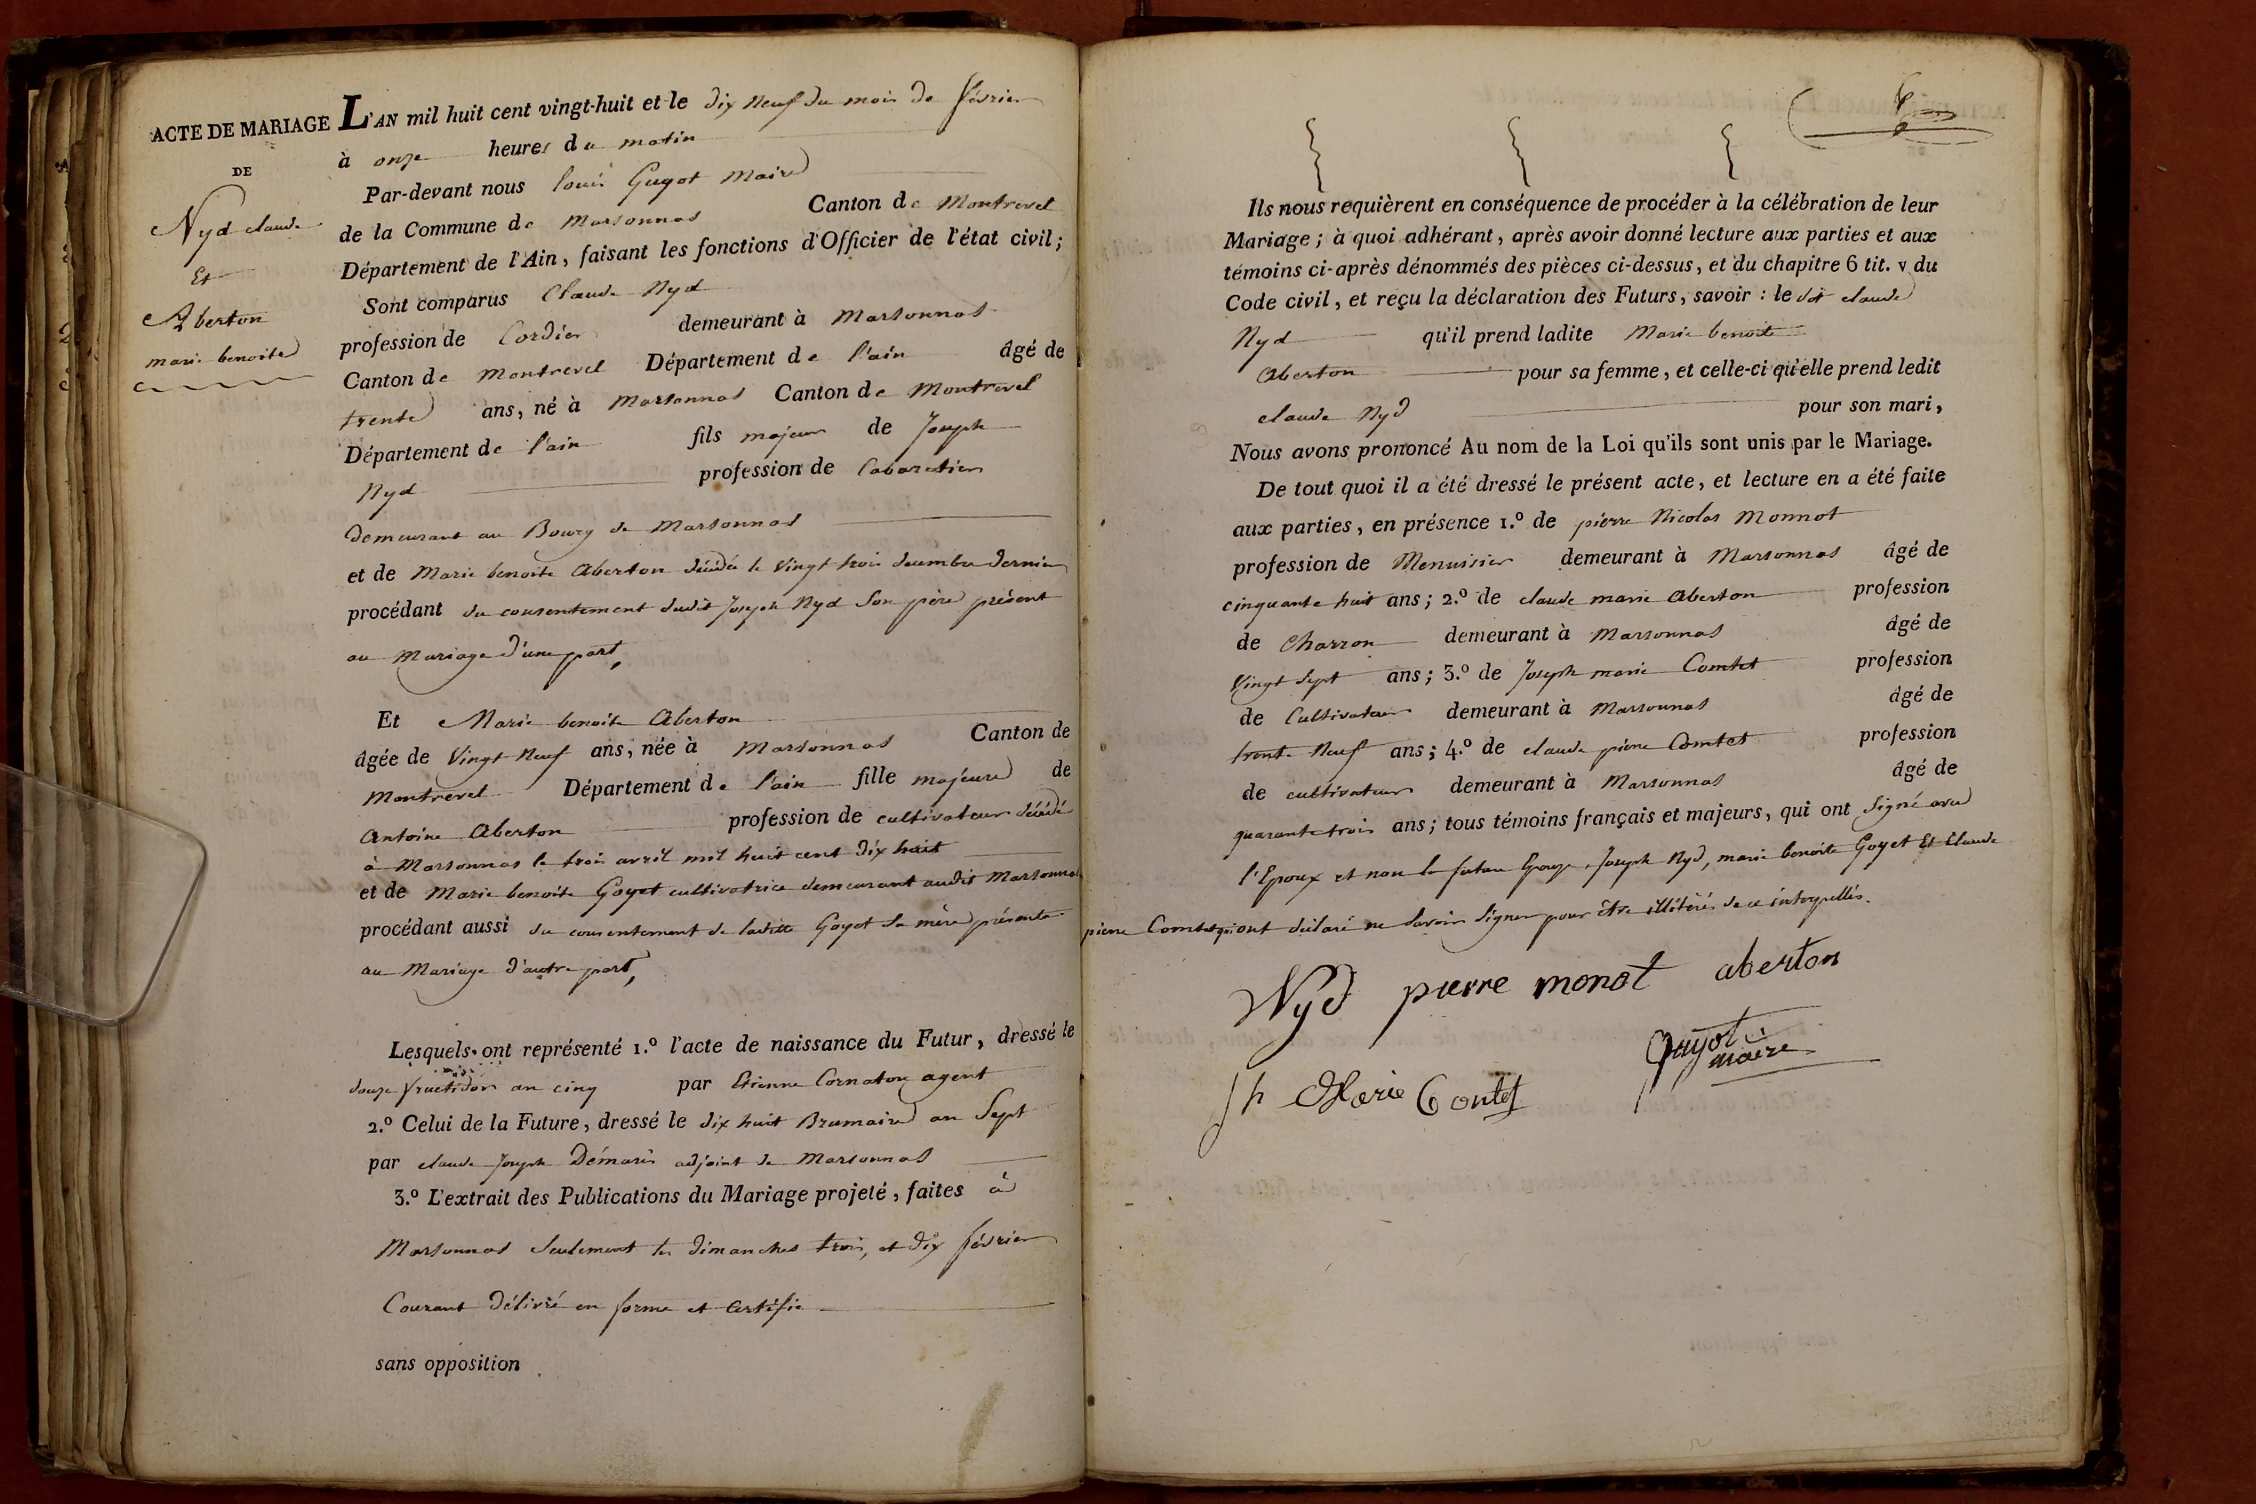 ACTE DE MARIAGE
DE
Nyd claude
Et
Aberton
marie benoite
L'AN mil huit cent vingt-huit et le dix neuf du mois de février
à onze heures du matin
Par-devant nous louis Guyot Maire
de la Commune de Marsonnas Canton de Montrevel
Département de l'Ain, faisant les fonctions d'Officier de l'état civil;
Sont comparus Claude Nyd
profession de Cordier demeurant à Marsonnas
Canton de Montrevel Département de l'ain âgé de
trente ans, né à Marsonnas Canton de Montrevel
Département de l'ain fils majeur de Joseph
Nyd profession de Cabaretier
demeurant au Bourg de Marsonnas
et de Marie benoite Aberton décédée le vingt trois decembre dernier
procédant du consentement dudit Joseph Nyd son père présent
au Mariage d'une part,
Et Marie benoite Aberton
âgée de vingt neuf ans, née à Marsonnas Canton de
Montrevel Département de l'ain fille majeure de
Antoine Aberton profession de cultivateur décédé
à Marsonnas le trois avril mil huit cent dix huit
et de Marie benoite Goyet cultivatrice demeurant audit Marsonnas
procédant aussi du consentement de ladite Goyet sa mère présente
au Mariage d'autre part,
Lesquels ont représenté 1.º l'acte de naissance du Futur, dressé le
douze fructidor an cinq par Etienne Cornaton agent
2.º Celui de la Future, dressé le dix huit Brumaire an Sept
par claude Joseph Démaris adjoint de Marsonnas
3.º L'extrait des Publications du Mariage projeté, faites à
Marsonnas seulement les dimanches trois, et dix février
Courant délivré en forme et certifié
sans opposition
Ils nous requièrent en conséquence de procéder à la célébration de leur
Mariage; à quoi adhérant, après avoir donné lecture aux parties et aux
témoins ci-après dénommés des pièces ci-dessus, et du chapitre 6 tit. v du
Code civil, et reçu la déclaration des Futurs, savoir : le dit claude
Nyd qu'il prend ladite Marie benoite
Aberton pour sa femme, et celle-ci qu'elle prend ledit
claude Nyd pour son mari,
Nous avons prononcé Au nom de la Loi qu'ils sont unis par le Mariage.
De tout quoi il a été dressé le présent acte, et lecture en a été faite
aux parties, en présence 1.º de pierre Nicolas Monnot
profession de Menuisier demeurant à Marsonnas âgé de
cinquante huit ans; 2.º de claude marie Aberton profession
de Charron demeurant à Marsonnas âgé de
vingt sept ans; 3.º de Joseph marie Comtet profession
de Cultivateur demeurant à Marsonnas âgé de
trente Neuf ans; 4.º de claude pierre Comtet profession
de cultivateur demeurant à Marsonnas âgé de
quarante trois ans; tous témoins français et majeurs, qui ont signé avec
l'Epoux et non la future Epouse, Joseph Nyd, marie benoite Goyet Et Claude
pierre Comtet qui ont déclaré ne savoir signer pour être illitérés de ce interpellés.
Nyd pierre monot aberton
Guyot
maire
Jh Marie Contet